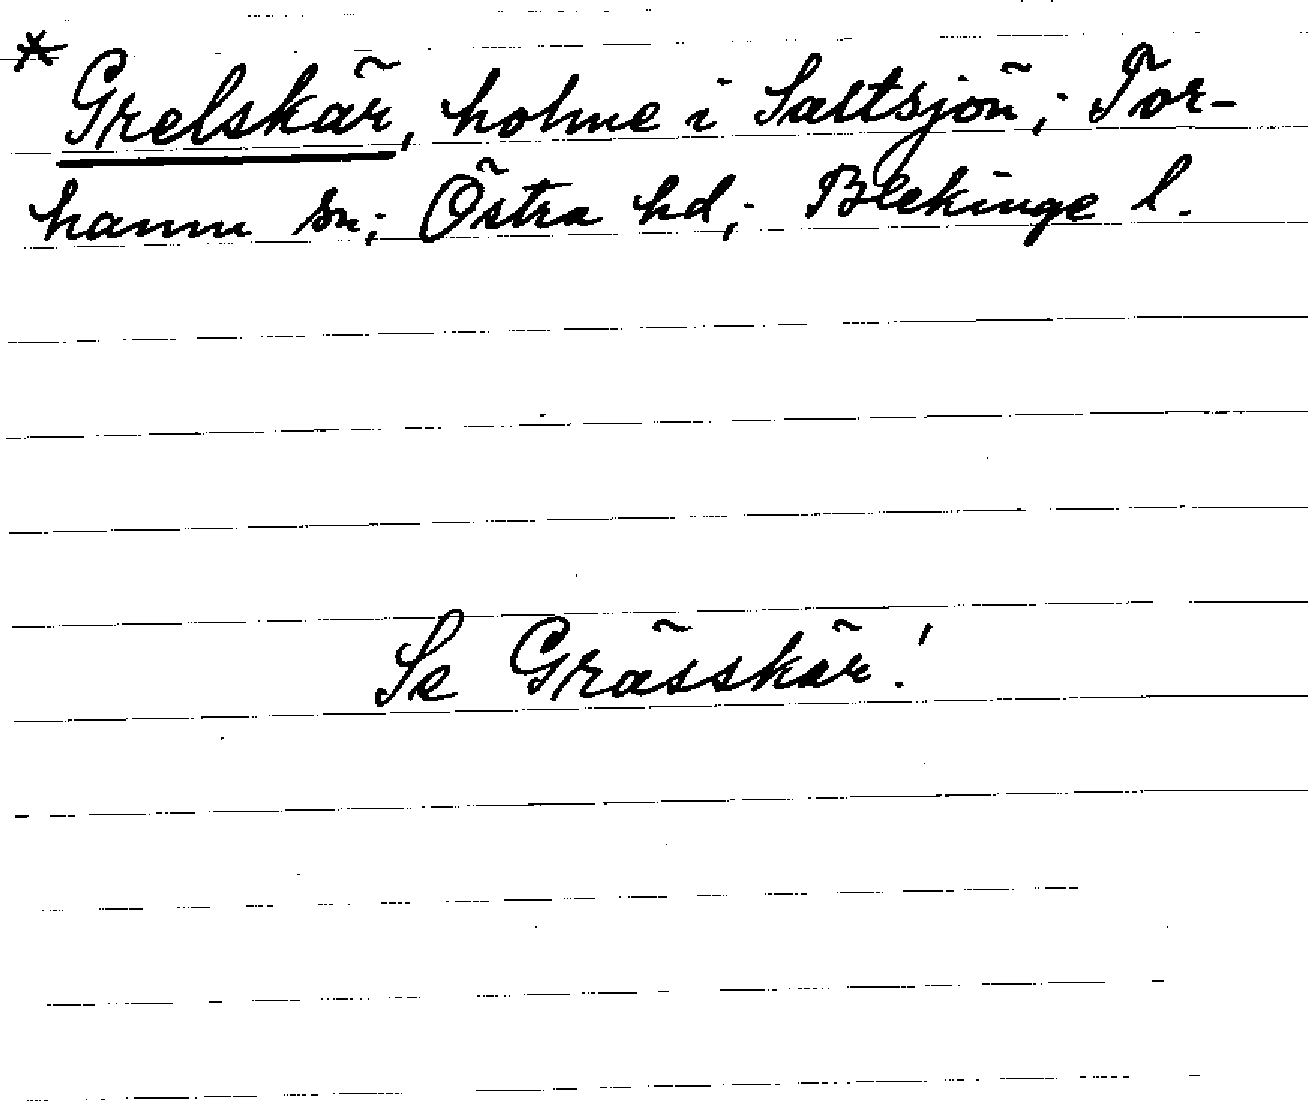 * Grelskär, holme i Saltsjön; Tor-
hamn sn; Östra hd; Blekinge l.
Se Grässkär!